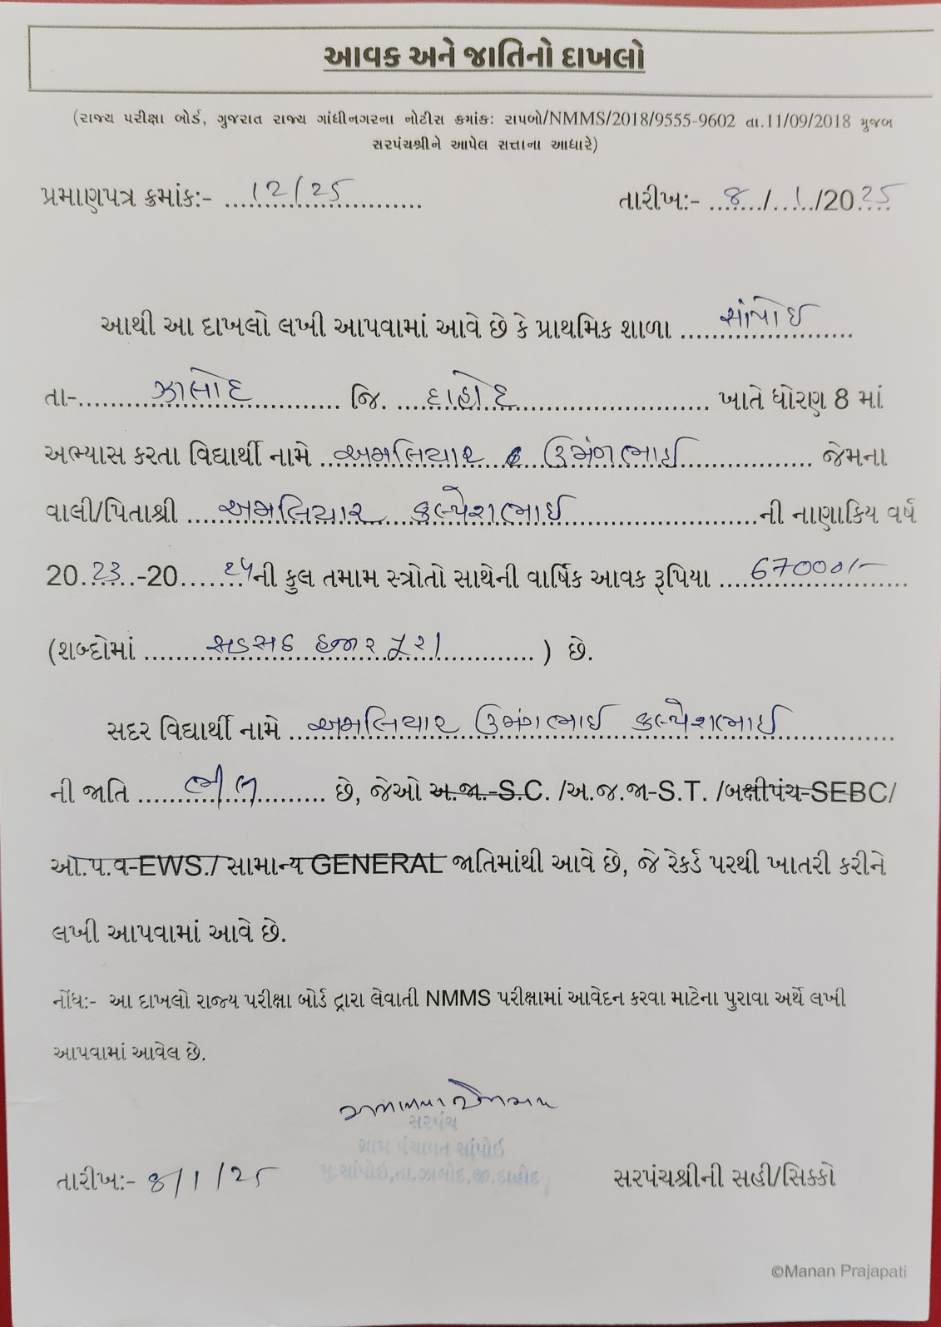 આવક અને જાતિનો દાખલો
(રાજ્ય પરીક્ષા બોર્ડ, ગુજરાત રાજ્ય ગાંધીનગરના નોટીસ ક્રમાંક: રાપબો/NMMS/2018/9555-9602 તા.11/09/2018 મુજબ
સરપંચશ્રીને આપેલ સત્તાના આધારે)
પ્રમાણપત્ર ક્રમાંક:- 12/25 તારીખ:- 8/1/2025
આથી આ દાખલો લખી આપવામાં આવે છે કે પ્રાથમિક શાળા સાંપોઈ
તા- ઝાલોદ જિ. દાહોદ ખાતે ધોરણ 8 માં
અભ્યાસ કરતા વિદ્યાર્થી નામે અમલિયાર ઉમંગભાઈ જેમના
વાલી/પિતાશ્રી અમલિયાર કલ્પેશભાઈ ની નાણાકિય વર્ષ
2023-2024ની કુલ તમામ સ્ત્રોતો સાથેની વાર્ષિક આવક રૂપિયા 67000/-
(શબ્દોમાં સડસઠ હજાર પુરા) છે.
સદર વિદ્યાર્થી નામે અમલિયાર ઉમંગભાઈ કલ્પેશભાઈ
ની જાતિ ભીલ છે, જેઓ અ.જા.-S.C. /અ.જ.જા-S.T. /બક્ષીપંચ-SEBC/
ઓ.પ.વ-EWS./ સામાન્ય GENERAL જાતિમાંથી આવે છે, જે રેકર્ડ પરથી ખાતરી કરીને
લખી આપવામાં આવે છે.
નોંધ:- આ દાખલો રાજ્ય પરીક્ષા બોર્ડ દ્વારા લેવાતી NMMS પરીક્ષામાં આવેદન કરવા માટેના પુરાવા અર્થે લખી
આપવામાં આવેલ છે.
સરપંચ
ગ્રામ પંચાયત સાંપોઈ
તારીખ:- 8/1/25 સરપંચશ્રીની સહી/સિક્કો
©Manan Prajapati